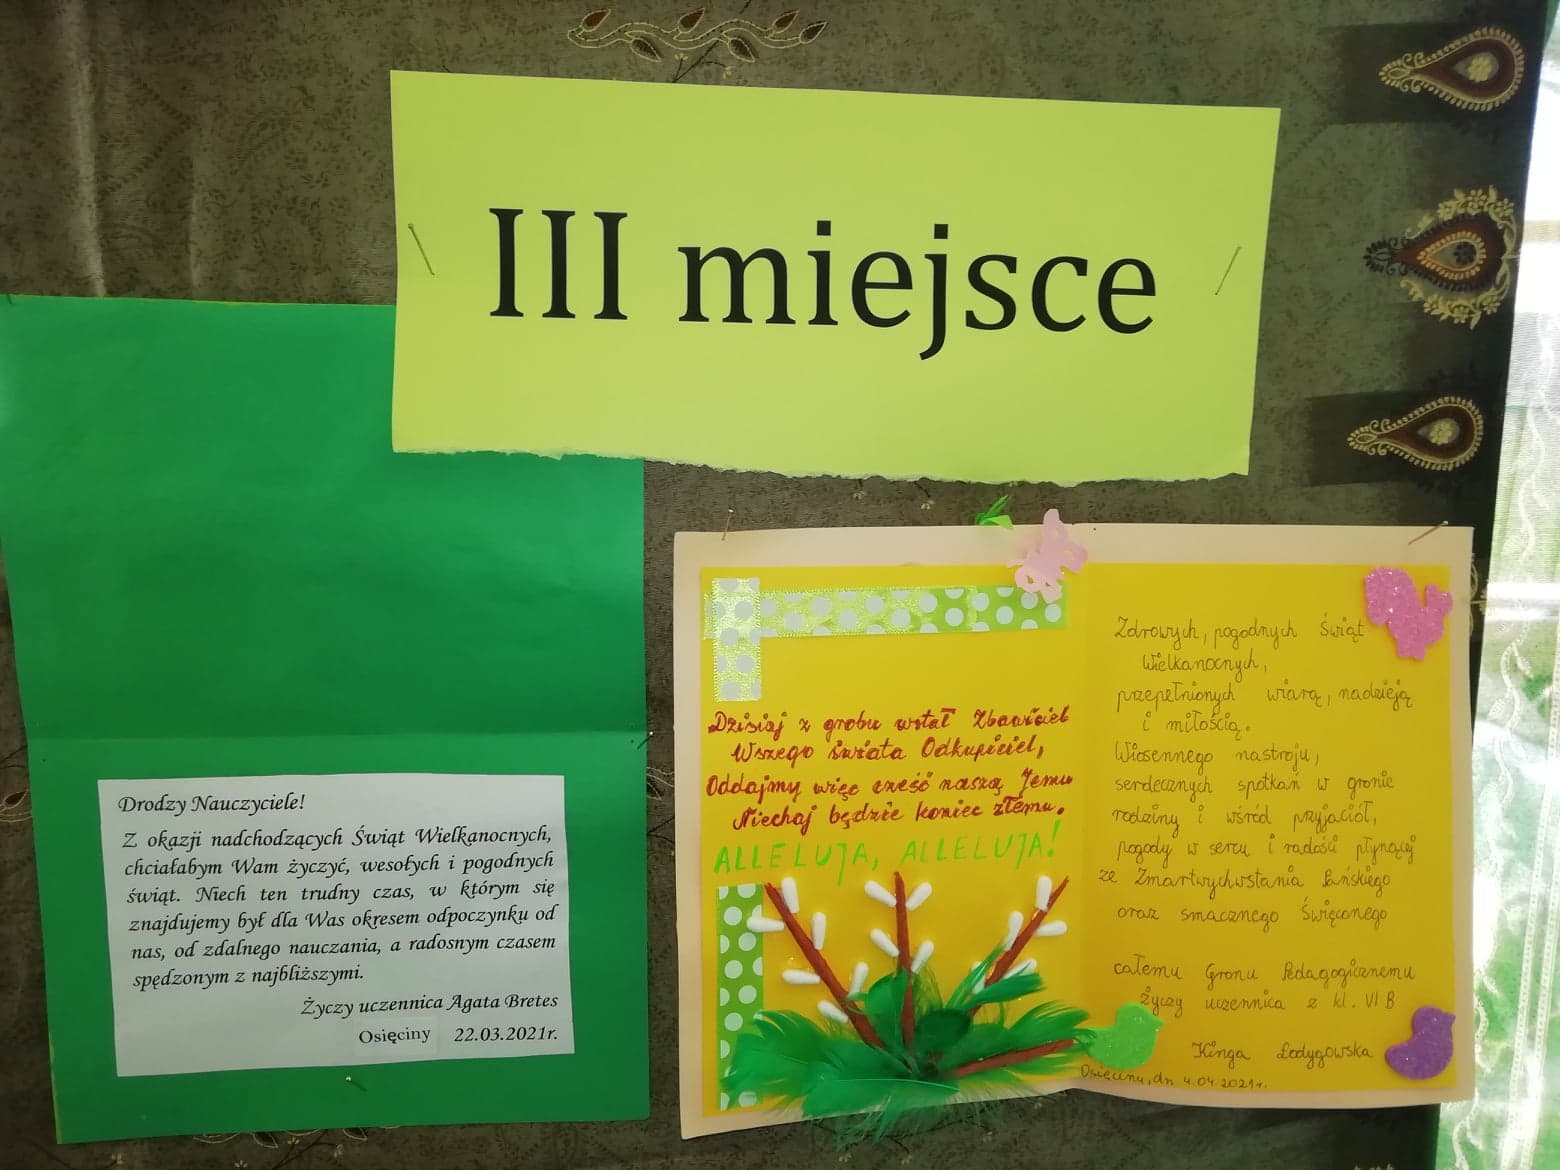 III miejsce
Drodzy Nauczyciele!
Z okazji nadchodzących Świąt Wielkanocnych,
chciałabym Wam życzyć, wesołych i pogodnych
świąt. Niech ten trudny czas, w którym się
znajdujemy był dla Was okresem odpoczynku od
nas, od zdalnego nauczania, a radosnym czasem
spędzonym z najbliższymi.
Życzy uczennica Agata Bretes
Osięciny 22.03.2021r.
Dzisiaj z grobu wstał Zbawiciel
Wszego świata Odkupiciel,
Oddajmy więc cześć naszą Jemu
Niechaj będzie koniec złemu.
ALLELUJA, ALLELUJA!
Zdrowych, pogodnych Świąt
Wielkanocnych,
przepełnionych wiarą, nadzieją
i miłością.
Wiosennego nastroju,
serdecznych spotkań w gronie
rodziny i wśród przyjaciół,
pogody w sercu i radości płynącej
ze Zmartwychwstania Pańskiego
oraz smacznego Święconego
całemu Gronu Pedagogicznemu
życzy uczennica z kl. VI B
Kinga Ledygowska
Osięciny, dn 4.04.2021r.